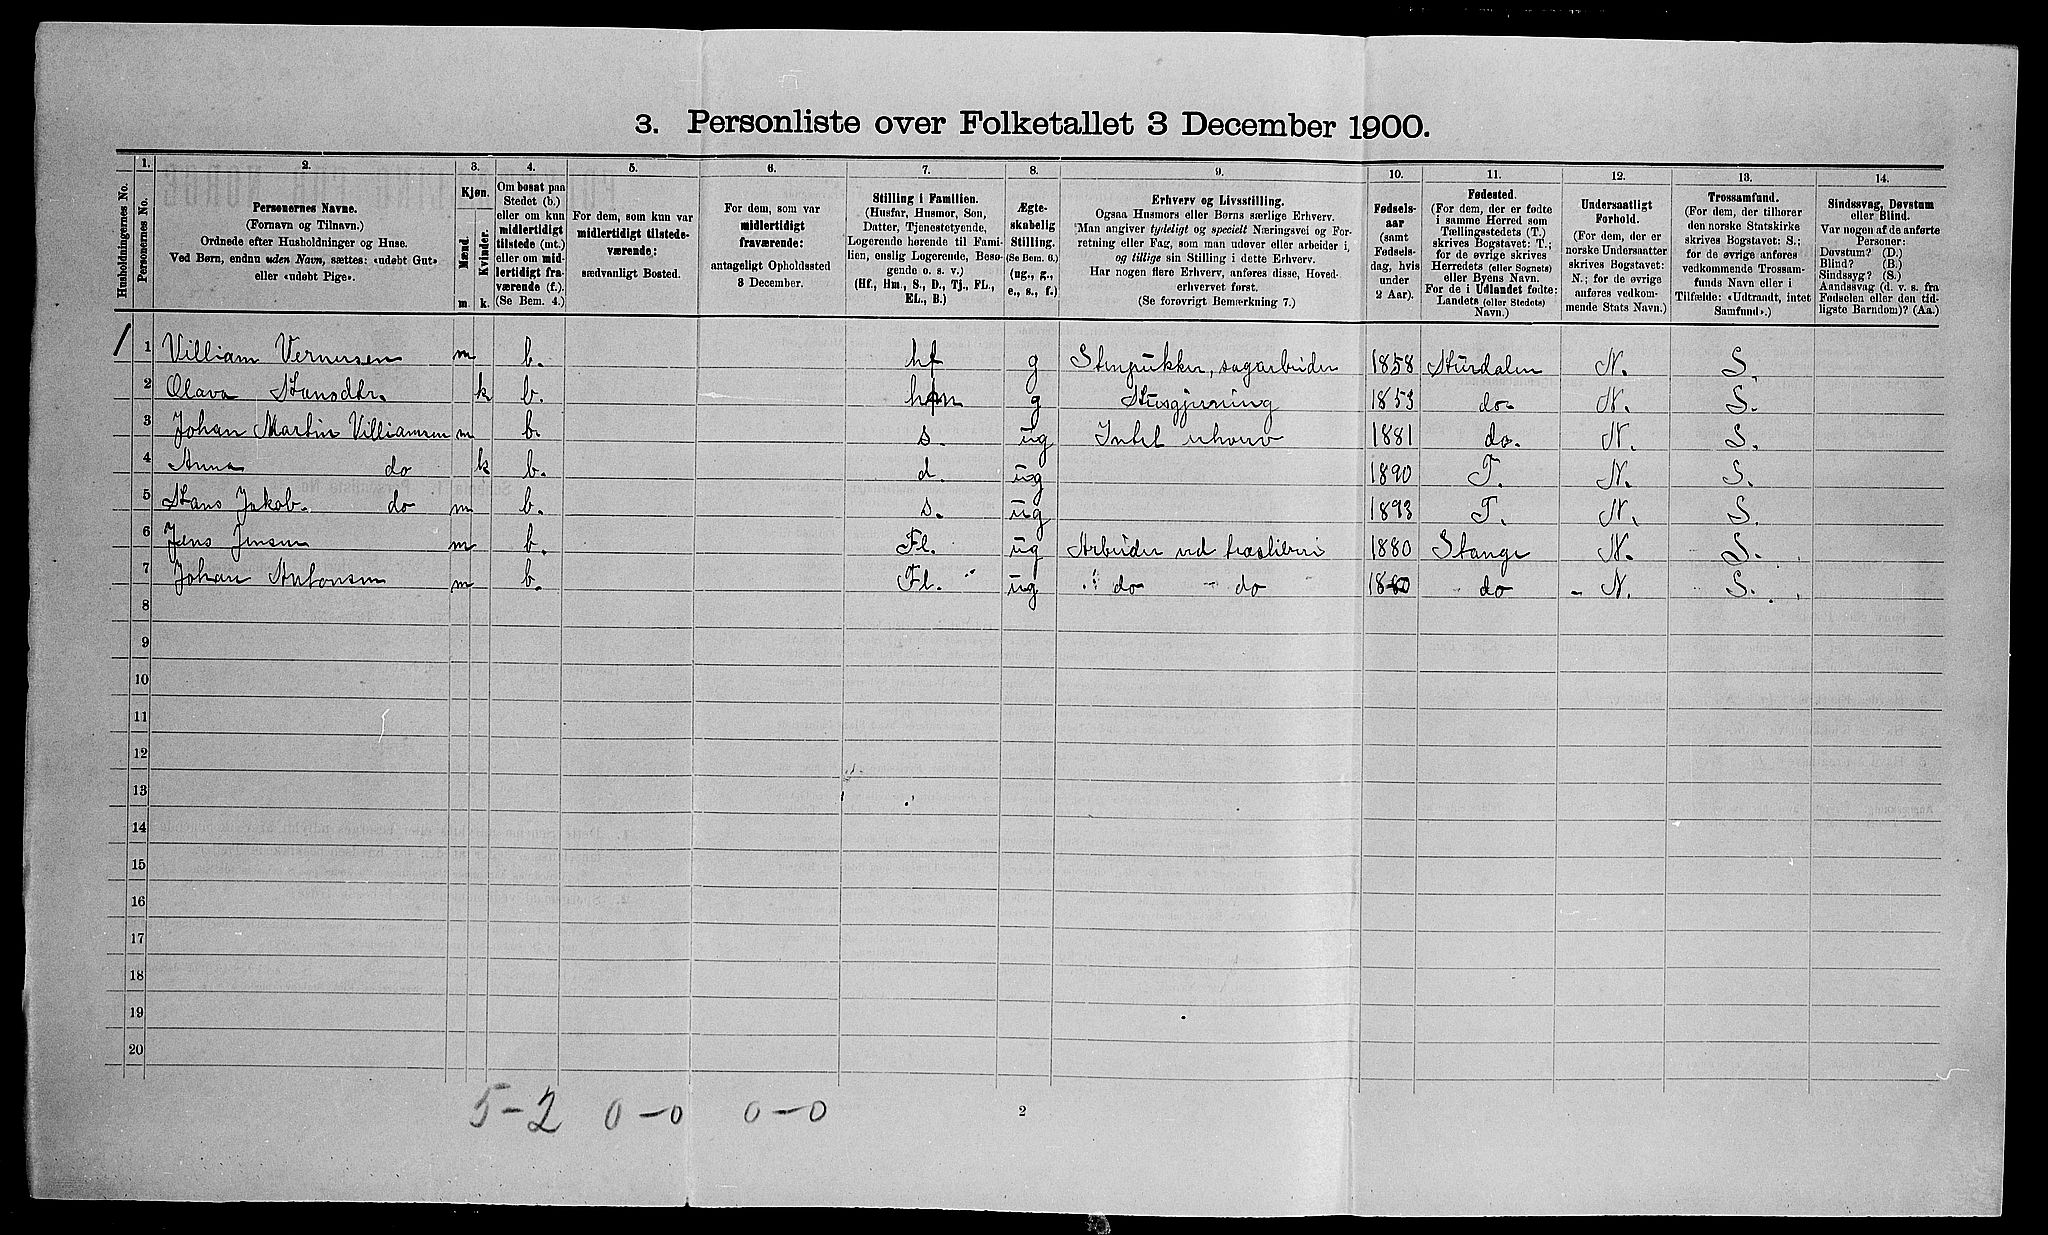 3. Personliste over Folketallet 3 December 1900.
1. 2. 3. 4. 5. 6. 7. 8. 9. 10. 11. 12. 13. 14.
Husholdningernes No.
Personernes No.
Personernes Navne.
(Fornavn og Tilnavn.)
Ordnede efter Husholdninger og Huse.
Ved Børn, endnu uden Navn, sættes: «udøbt Gut»
eller «udøbt Pige».
Kjøn.
Mænd.
Kvinder.
m. k.
Om bosat paa
Stedet (b.)
eller om kun
midlertidigt
tilstede (mt.)
eller om mid-
lertidigt fra-
værende (f.).
(Se Bem. 4.)
For dem, som kun var
midlertidigt tilstede-
værende:
sædvanligt Bosted.
For dem, som var
midlertidigt
fraværende:
antageligt Opholdssted
3 December.
Stilling i Familien.
(Husfar, Husmor, Søn,
Datter, Tjenestetyende,
Logerende hørende til Fami-
lien, enslig Logerende, Besø-
gende o. s. v.)
(Hf., Hm., S., D., Tj., FL.,
EL., B.)
Ægte-
skabelig
Stilling.
(Se Bem. 6.)
(ug., g.,
e., s., f.)
Erhverv og Livsstilling.
Ogsaa Husmors eller Børns særlige Erhverv.
Man angiver tydeligt og specielt Næringsvei og For-
retning eller Fag, som man udøver eller arbeider i,
og tillige sin Stilling i dette Erhverv.
Har nogen flere Erhverv, anføres disse, Hoved-
erhvervet først.
(Se forøvrigt Bemærkning 7.)
Fødsels-
aar
(samt
Fødsels-
dag, hvis
under
2 Aar).
Fødested.
(For dem, der er fødte
i samme Herred som
Tællingsstedets (T.)
skrives Bogstavet: T.;
for de øvrige skrives
Herredets (eller Sognets)
eller Byens Navn.
For de i Udlandet fødte:
Landets (eller Stedets)
Navn.)
Undersaatligt
Forhold.
(For dem, der er
norske Undersaatter
skrives Bogstavet:
N.; for de øvrige
anføres vedkom-
mende Stats Navn.)
Trossamfund.
(For dem, der tilhører
den norske Statskirke
skrives Bogstavet: S.;
for de øvrige anføres
vedkommende Trossam-
funds Navn eller i
Tilfælde: «Udtraadt, intet
Samfund».)
Sindssvag, Døvstum
eller Blind.
Var nogen af de anførte
Personer:
Døvstum? (D.)
Blind? (B.)
Sindssyg? (S.)
Aandssvag (d. v. s. fra
Fødselen eller den tid-
ligste Barndom)? (Aa.)
1 1 Villiam Vernersen m b. hf g Stenpukker, sagarbeider 1858 Hurdalen N. S.
2 Olava Hansdtr. k b. hm g Husgjerning 1853 do- N. S.
3 Johan Martin Villiamsen m b. s. ug Intet erhverv 1881 do. N. S.
4 Anna do k b. d. ug 1890 T. N. S.
5 Hans Jakob. do m b. s. ug 1893 T. N. S.
6 Jens Jensen m b. Fl. ug Arbeider ved træsliberi 1880 Stange N. S.
7 Johan Antonsen m b. Fl. ug do do 1880 do N. S.
8
9
10
11
12
13
14
15
16
17
18
19
20
5-2 0-0 0-0
2